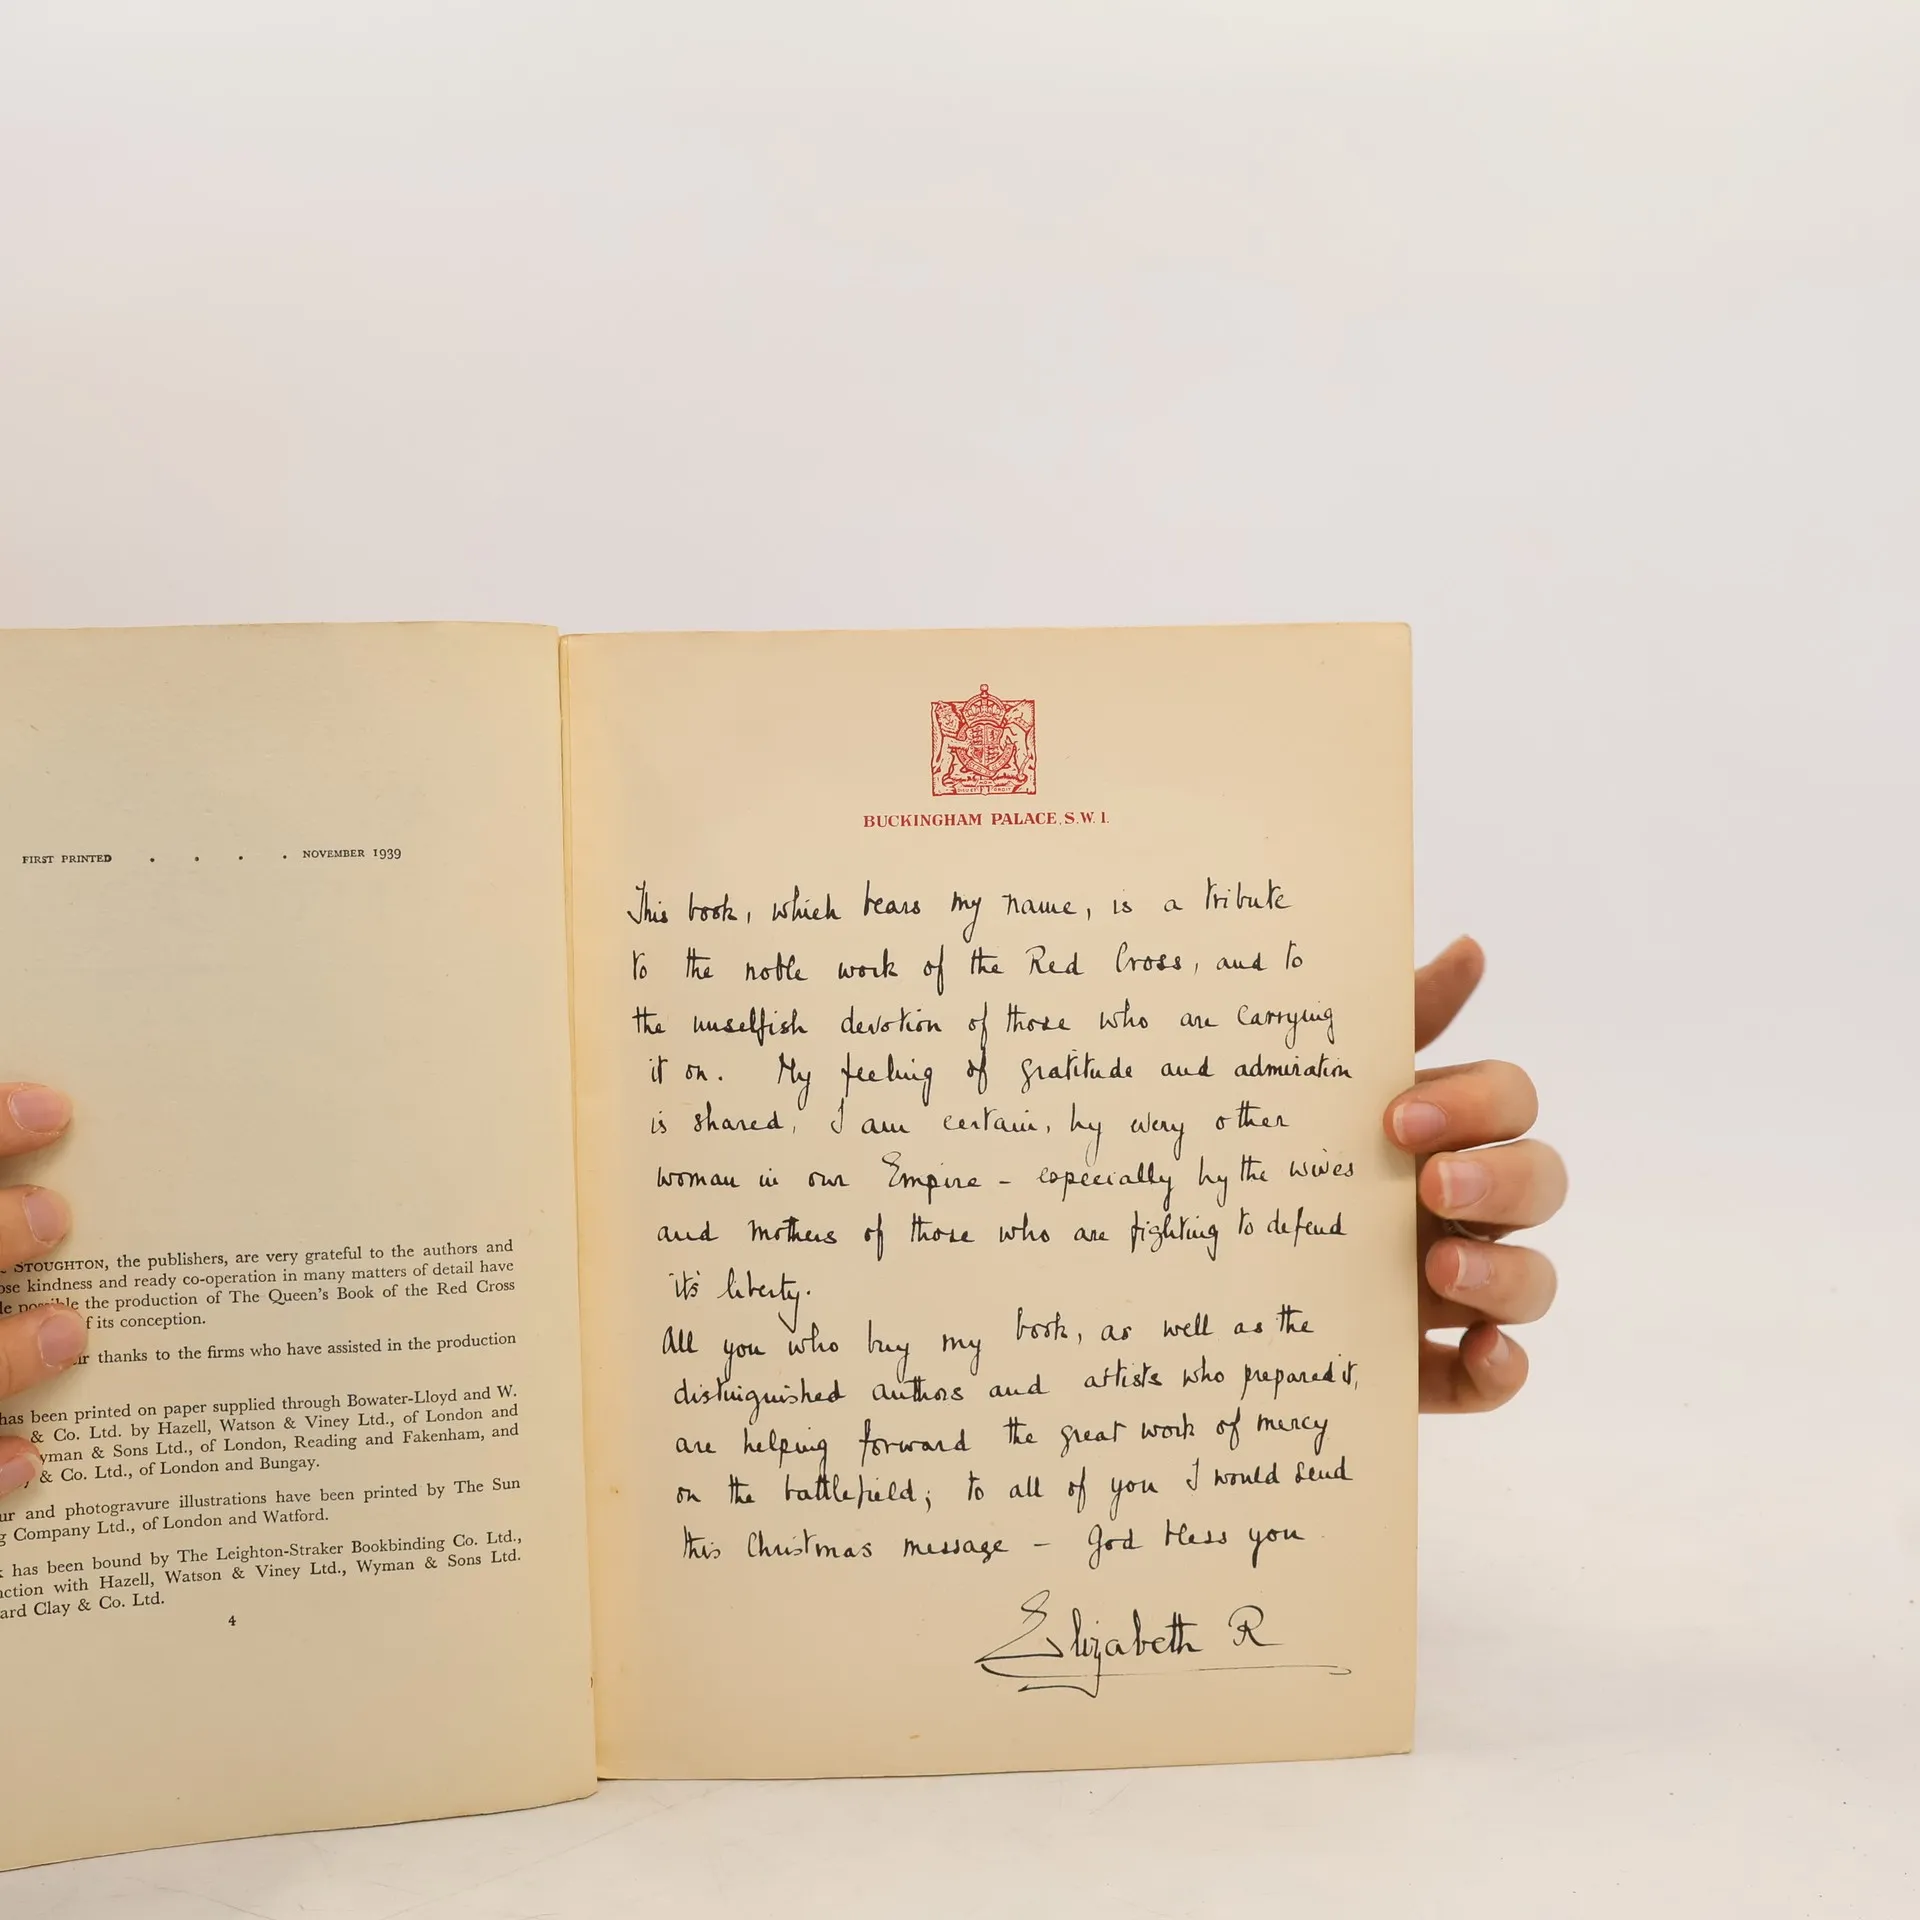 FIRST PRINTED . . . . NOVEMBER 1939
STOUGHTON, the publishers, are very grateful to the authors and
ose kindness and ready co-operation in many matters of detail have
le possible the production of The Queen's Book of the Red Cross
f its conception.
ir thanks to the firms who have assisted in the production
has been printed on paper supplied through Bowater-Lloyd and W.
& Co. Ltd. by Hazell, Watson & Viney Ltd., of London and
yman & Sons Ltd., of London, Reading and Fakenham, and
y & Co. Ltd., of London and Bungay.
ur and photogravure illustrations have been printed by The Sun
g Company Ltd., of London and Watford.
k has been bound by The Leighton-Straker Bookbinding Co. Ltd.,
nction with Hazell, Watson & Viney Ltd., Wyman & Sons Ltd.
ard Clay & Co. Ltd.
4
BUCKINGHAM PALACE, S.W. 1.
This book, which bears my name, is a tribute
to the noble work of the Red Cross, and to
the unselfish devotion of those who are carrying
it on. My feeling of gratitude and admiration
is shared, I am certain, by every other
woman in our Empire - especially by the wives
and mothers of those who are fighting to defend
it's liberty.
All you who buy my book, as well as the
distinguished authors and artists who prepared it,
are helping forward the great work of mercy
on the battlefield; to all of you I would send
this Christmas message - God bless you.
Elizabeth R